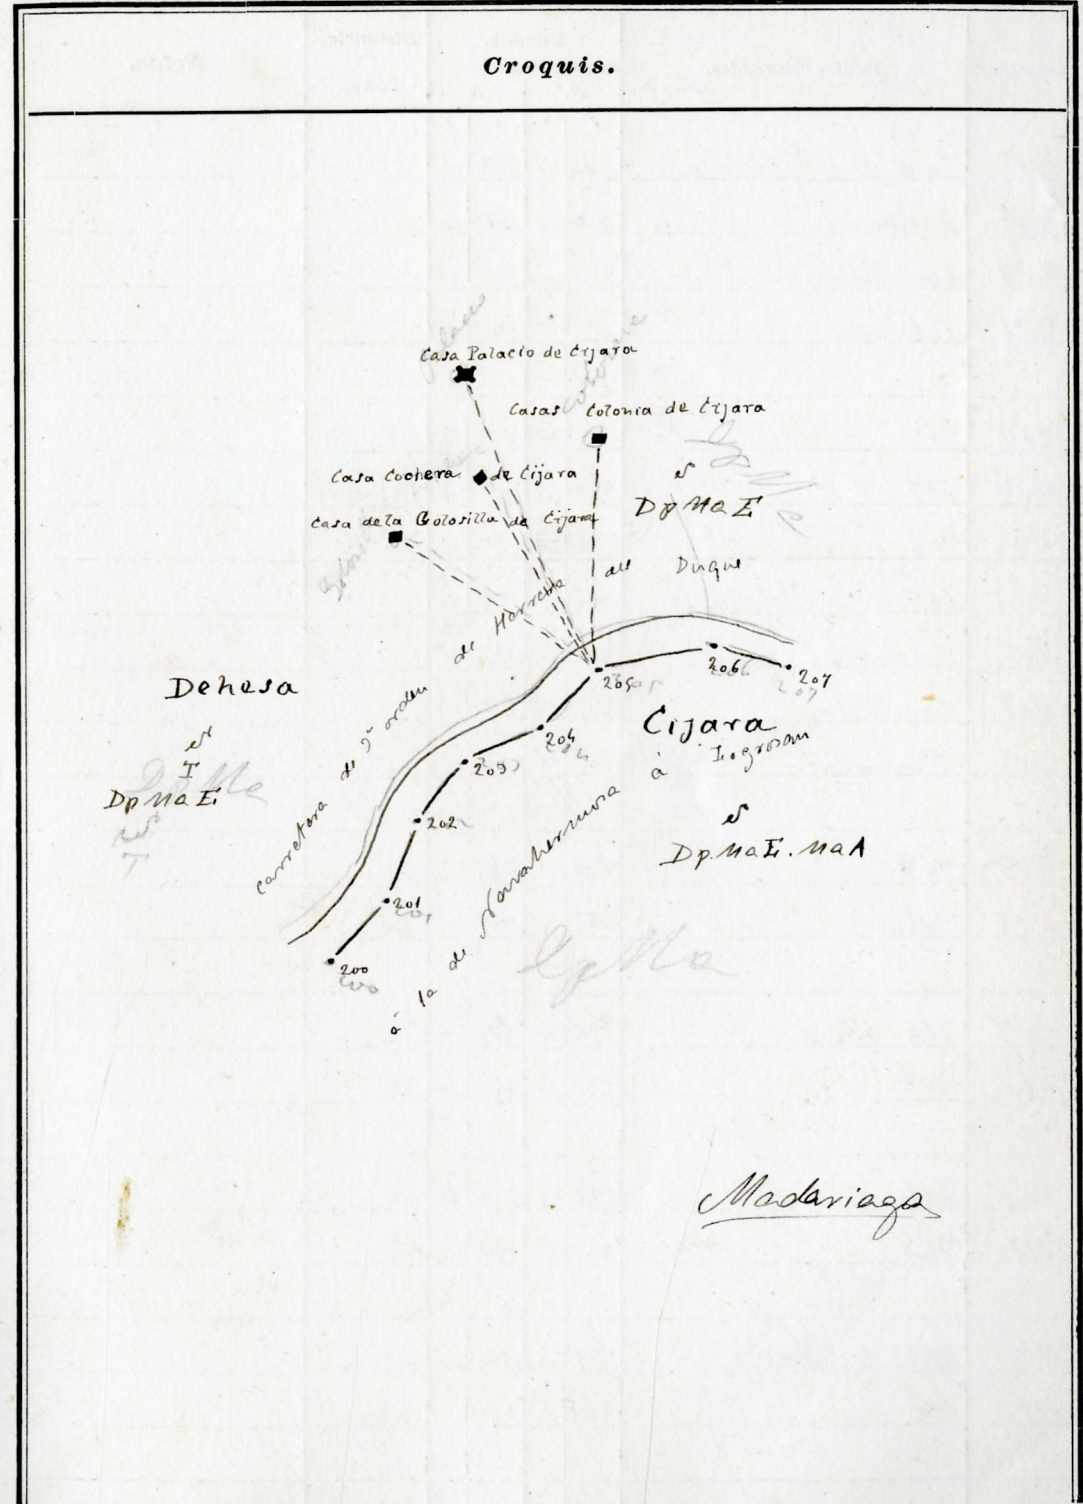 Croquis.
Casa Palacio de Cijara
Casas Colonia de Cijara
Casa Cochera de Cijara
Casa de la Golosilla de Cijara
Dp Ma E
del Duque
carretera de 3er orden de Herrera
à la de Navahermosa à Logrosan
Dehesa
I
Dp Ma E
Cijara
Dp. Ma E. Ma A
200
201
202
203
204
205
206
207
Madariaga